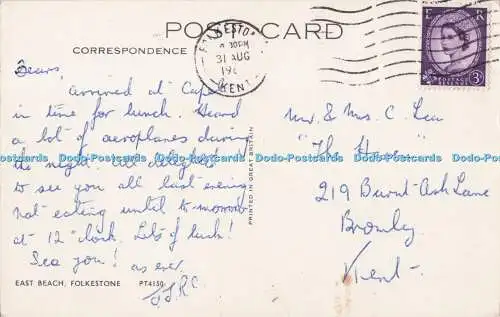 POST CARD
CORRESPONDENCE
FOLKESTONE
30PM
31 AUG
196
KENT
E R
POSTAGE
3D
Dears,
arrived at Cafe
in time for lunch. Heard
a lot of aeroplanes during
the night. All delighted
to see you all last evening
Not eating until to-morrow
at 12 o'clock. Lots of luck!
See you! as ever
J.J.R.C.
Mr & Mrs C. Lea
"The Haven"
219 Burnt Ash Lane
Bromley
Kent.
PRINTED IN GREAT BRITAIN
EAST BEACH, FOLKESTONE PT4150
Dodo-Postcards Dodo-Postcards Dodo-Postcards Dodo-Postcards Dodo-Postcards Dodo-Postcards